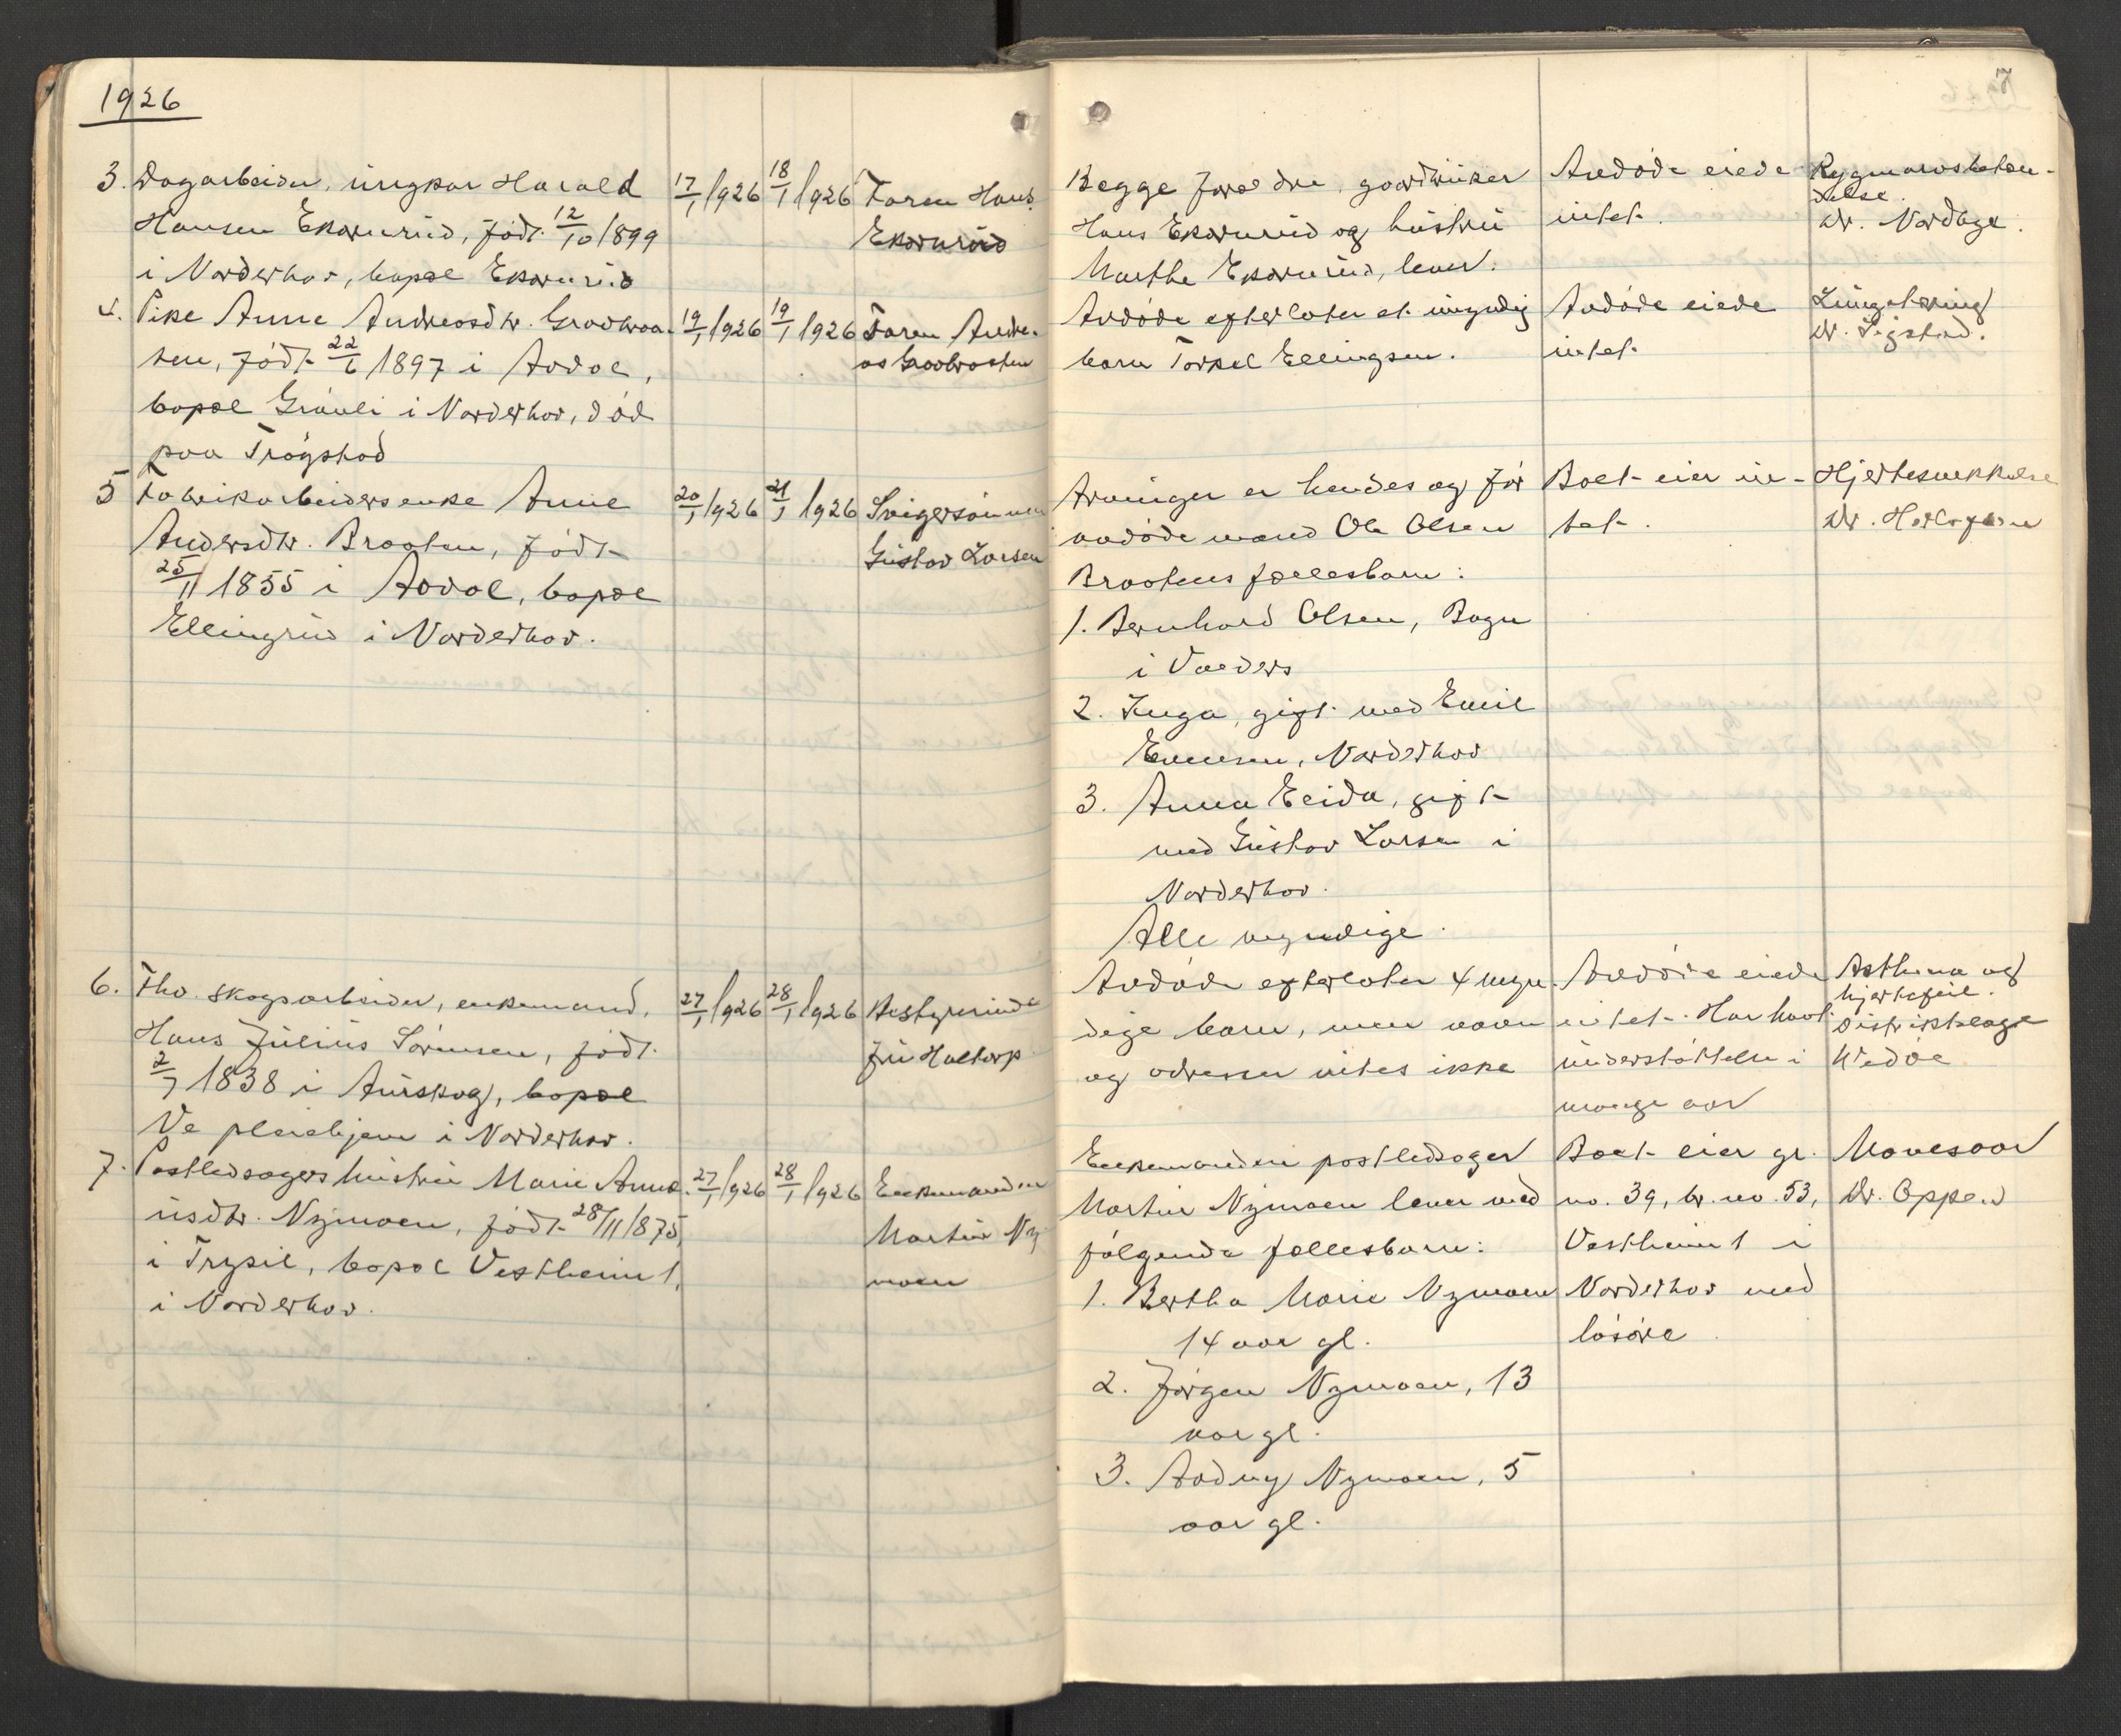 1926
7
3. Dagarbeider, ungkar Harald
Hansen Ekornrud, født 12/10 1899
i Norderhov, bopæl Ekornrud
17/1 1926
18/1 1926
Faren Hans
Ekornrud
Begge foræ dre, gaardbruker
Hans Ekornrud og hustru
Marthe Ekornrud, lever.
Avdøde eiede
intet.
Rygmarvsbeten-
delse.
Dr. Nordbye.
4. Pike Anne Andreasdtr. Graabraa-
ten, født 22/6 1897 i Aadal,
bopæl Grønli i Norderhov, død
paa Trøgstad
19/1 1926
19/1 1926
Faren Andre-
as Graabraaten
Avdøde efterlater et umyndig
barn Torkel Ellingsen.
Avdøde eiede
intet.
Lungetæring
Dr. Sigstad.
5 Fabrikarbeidersenke Anne
Andersdtr. Braaten, født
25/11 1855 i Aadal, bopæl
Ellingrud i Norderhov.
20/1 1926
21/1 1926
Svigersønnen
Gustav Larsen
Arvinger er hendes og før
avdøde mand Ole Olsen
Braatens fællesbarn:
1. Bernhard Olsen, Bagn
i Valders
2. Inga, gift med Emil
Evensen, Norderhov
3. Anna Elida, gift
med Gustav Larsen i
Norderhov.
Alle myndige.
Boet eier in-
tet.
Hjertesvekkelse
Dr. Herlofsen
6. Fhv. skogsarbeider, enkemand,
Hans Julius Sørensen, født
2/7 1838 i Aurskog, bopæl
Ve pleiehjem i Norderhov.
27/1 1926
28/1 1926
Bestyrerinde
fru Haltorp.
Avdøde efterlater 4 myn-
dige barn, men navn
og adresser vites ikke
Avdøde eiede
intet. Har havt
understøttelse i
mange aar
Asthma og
hjertefeil.
Distriktslæge
Wedøe
7. Postledsagers hustru Marie Amand-
usdtr. Nymoen, født 28/11 1875,
i Trysil, bopæl Vestheim 1,
i Norderhov.
27/1 1926
28/1 1926
Enkemanden
Martin Ny-
moen
Enkemanden postledsager
Martin Nymoen lever med
følgende fællesbarn:
1. Bertha Marie Nymoen
14 aar gl.
2. Jørgen Nymoen, 13
aar gl.
3. Aadny Nymoen, 5
aar gl.
Boet eier gr.
no. 39, br. no. 53,
Vestheim 1 i
Norderhov med
løsøre
Mavesaar
Dr. Oppen